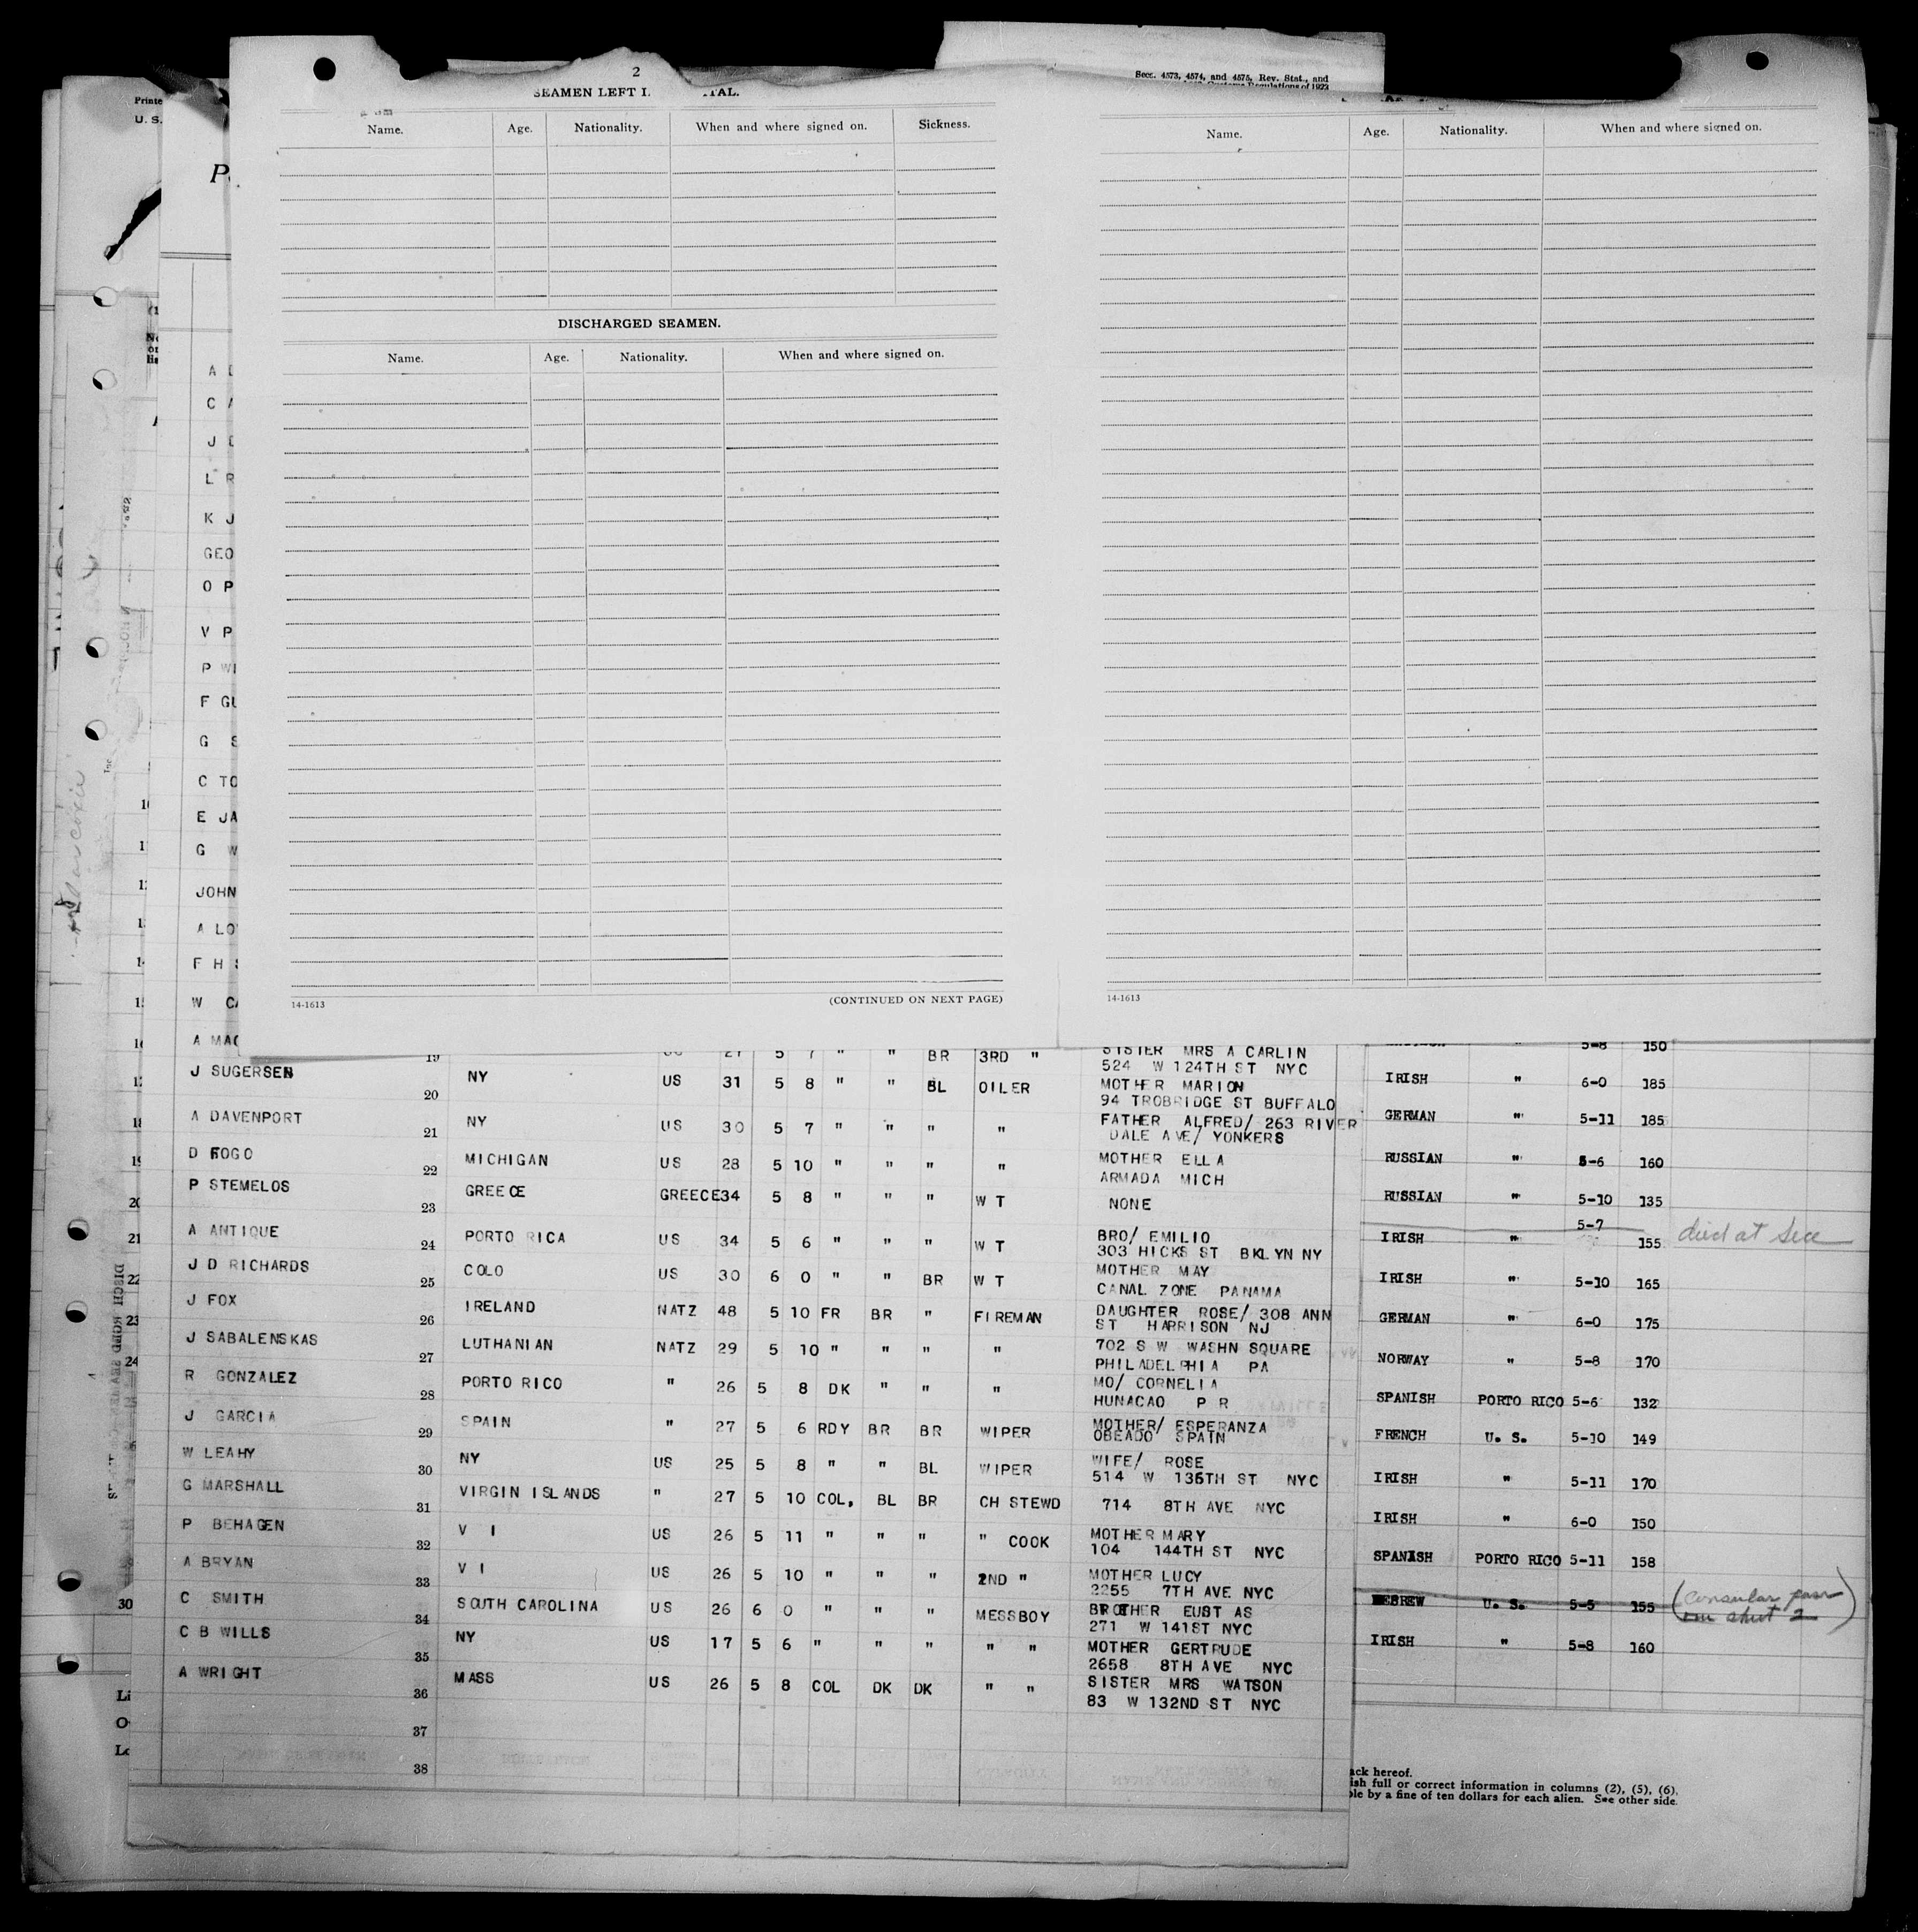 2
SEAMEN LEFT I. ITAL.
Secs. 4573, 4574, and 4575, Rev. Stat., and
Customs Regulations of 1923
Printe
U. S.
Name. Age. Nationality. When and where signed on. Sickness.
Name. Age. Nationality. When and where signed on.
DISCHARGED SEAMEN.
Name. Age. Nationality. When and where signed on.
C A
L R
K J
GEO
O P
V P
P WI
F GU
G S
C TO
E JA
G W
JOHN
A LO
F H
W CA
A MAC
14-1613 (CONTINUED ON NEXT PAGE) 14-1613
19 5 7 " " BR 3RD " SISTER MRS A CARLIN
524 W 124TH ST NYC
J SUGERSEN 20 NY US 31 5 8 " " BL OILER MOTHER MARION
94 TROBRIDGE ST BUFFALO
A DAVENPORT 21 NY US 30 5 7 " " " " FATHER ALFRED/ 263 RIVER
DALE AVE/ YONKERS
D FOGO 22 MICHIGAN US 28 5 10 " " " " MOTHER ELLA
ARMADA MICH
P STEMELOS 23 GREECE GREECE34 5 8 " " " W T NONE
A ANTIQUE 24 PORTO RICA US 34 5 6 " " " W T BRO/ EMILIO
303 HICKS ST BKLYN NY
J D RICHARDS 25 COLO US 30 6 0 " " BR W T MOTHER MAY
CANAL ZONE PANAMA
J FOX 26 IRELAND NATZ 48 5 10 FR BR " FIREMAN DAUGHTER ROSE/ 308 ANN
ST HARRISON NJ
J SABALENSKAS 27 LUTHANIAN NATZ 29 5 10 " " " " 702 S W WASHN SQUARE
PHILADELPHIA PA
R GONZALEZ 28 PORTO RICO " 26 5 8 DK " " " MO/ CORNELIA
HUNACAO P R
J GARCIA 29 SPAIN " 27 5 6 RDY BR BR WIPER MOTHER/ ESPERANZA
OBEADO SPAIN
W LEAHY 30 NY US 25 5 8 " " BL WIPER WIFE/ ROSE
514 W 136TH ST NYC
G MARSHALL 31 VIRGIN ISLANDS " 27 5 10 COL, BL BR CH STEWD 714 8TH AVE NYC
P BEHAGEN 32 V I US 26 5 11 " " " " COOK MOTHER MARY
104 144TH ST NYC
A BRYAN 33 V I US 26 5 10 " " " 2ND " MOTHER LUCY
2255 7TH AVE NYC
C SMITH 34 SOUTH CAROLINA US 26 6 0 " " " MESSBOY BROTHER EUSTAS
271 W 141ST NYC
C B WILLS 35 NY US 17 5 6 " " " " " MOTHER GERTRUDE
2658 8TH AVE NYC
A WRIGHT 36 MASS US 26 5 8 COL DK DK " " SISTER MRS WATSON
83 W 132ND ST NYC
37
38
5-8 150
IRISH " 6-0 185
GERMAN " 5-11 185
RUSSIAN " 5-6 160
RUSSIAN " 5-10 135
5-7
IRISH " 155 died at sea
IRISH " 5-10 165
GERMAN " 6-0 175
NORWAY " 5-8 170
SPANISH PORTO RICO 5-6 132
FRENCH U. S. 5-10 149
IRISH " 5-11 170
IRISH " 6-0 150
SPANISH PORTO RICO 5-11 158
HEBREW U. S. 5-5 155 (consular pass
on sheet 2)
IRISH " 5-8 160
ack hereof.
ish full or correct information in columns (2), (5), (6),
ble by a fine of ten dollars for each alien. See other side.